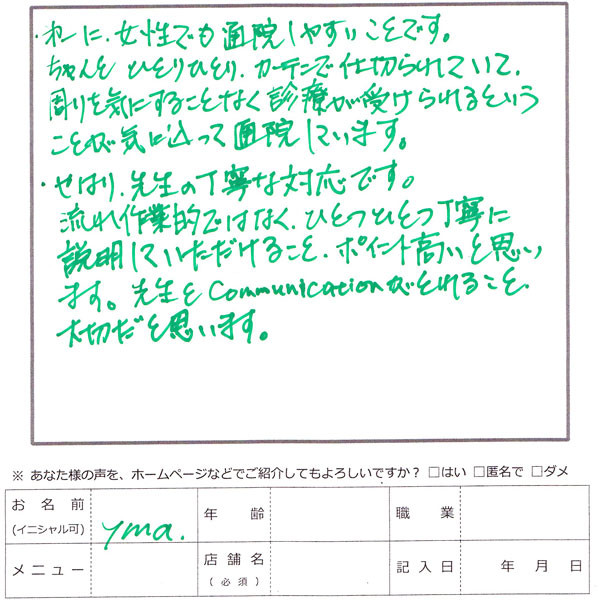 ・オーに、女性でも通院しやすいことです。
ちゃんと ひとりひとり、カーテンで仕切られていて、
周りを気にすることなく診療が受けられるという
ことが気に入って通院しています。
・やはり、先生の丁寧な対応です。
流れ作業的ではなく、ひとつひとつ丁寧に
説明していただけること、ポイント高いと思い
ます。先生とCommunicationがとれること、
大切だと思います。
※ あなた様の声を、ホームページなどでご紹介してもよろしいですか？ □はい □匿名で □ダメ
お名前 (イニシャル可) yma. 年齢 職業
メニュー 店舗名 (必須) 記入日 年 月 日